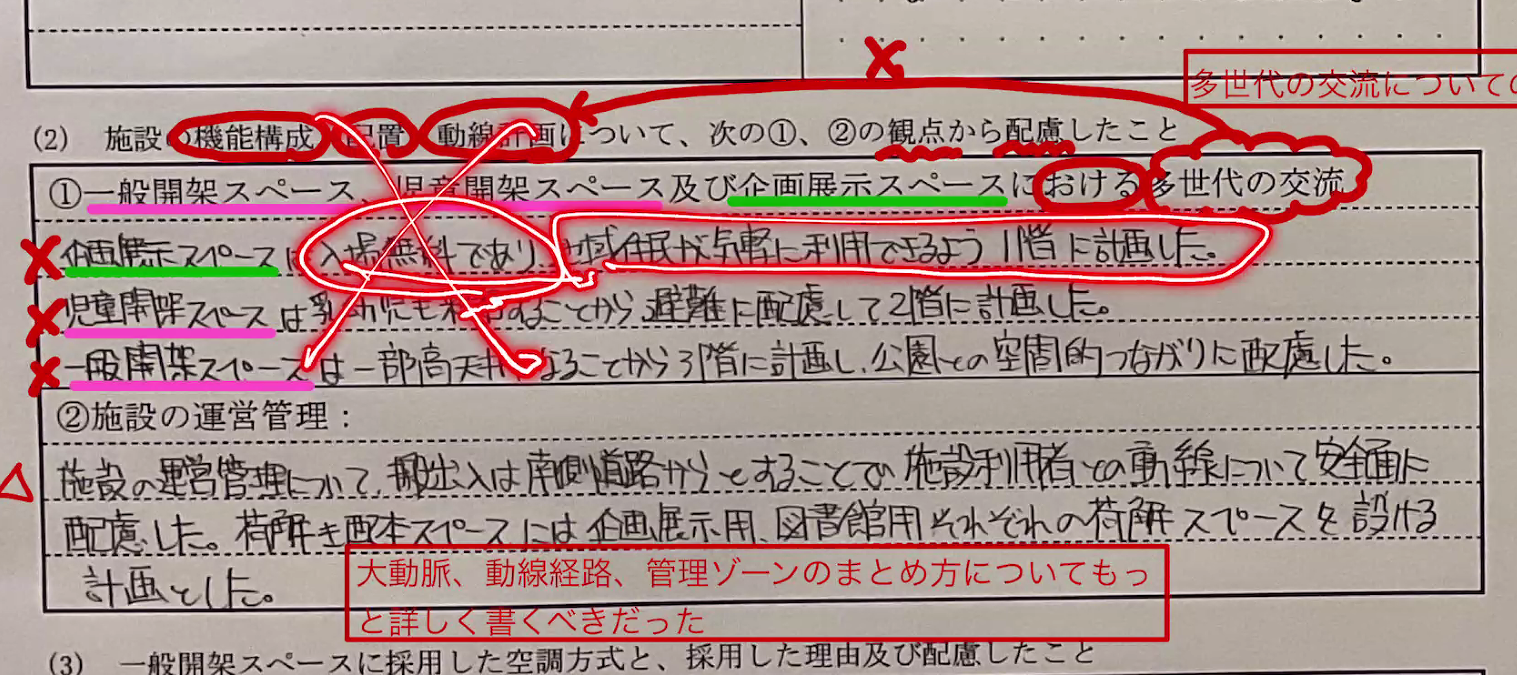 多世代の交流についての
(2) 施設の機能構成、配置、動線計画について、次の①、②の観点から配慮したこと
①一般開架スペース、児童開架スペース及び企画展示スペースにおける多世代の交流
企画展示スペースは入場無料であり、地域住民が気軽に利用できるよう1階に計画した。
児童開架スペースは乳幼児も利用することから避難に配慮して2階に計画した。
一般開架スペースは一部高天井となることから3階に計画し、公園との空間的つながりに配慮した。
②施設の運営管理：
施設の運営管理について、搬出入は南側道路からとすることで施設利用者との動線について安全面に
配慮した。荷解き配本スペースには企画展示用、図書館用それぞれの荷解スペースを設ける
計画とした。
大動脈、動線経路、管理ゾーンのまとめ方についてもっ
と詳しく書くべきだった
(3) 一般開架スペースに採用した空調方式と、採用した理由及び配慮したこと